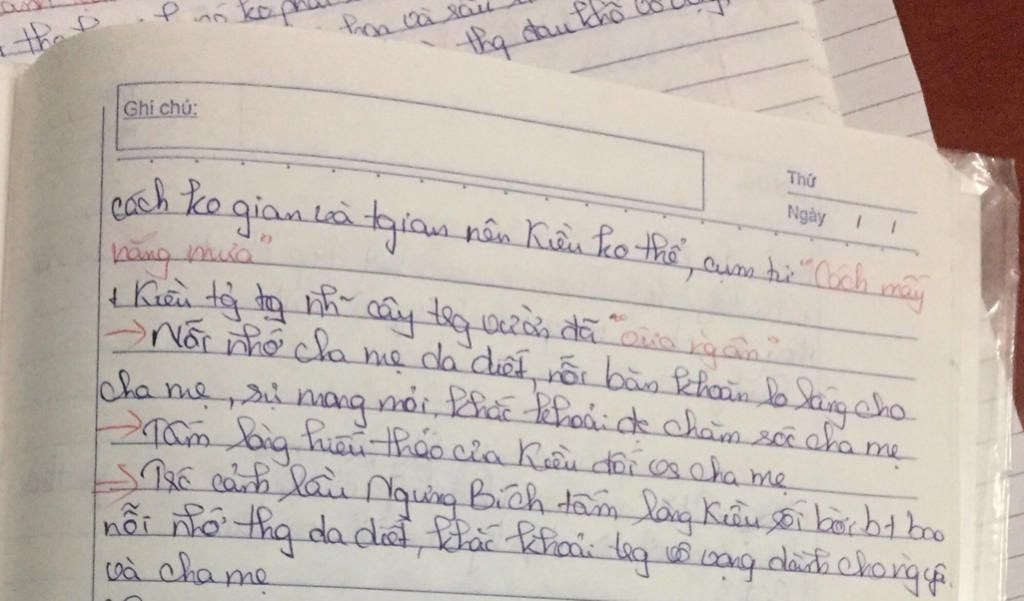 thg đau khổ vô vọng
Ghi chú:
Thứ
Ngày / /
cách ko gian và tgian nên Kiều ko thể, cụm từ "Cách mấy
nắng mưa"
+ Kiều tg nh~ cây tog vườn đã "vừa ng ôm"
→ Nỗi nhớ cha mẹ da diết, nỗi băn khoăn lo lắng cho
cha mẹ, sự mong mỏi, khắc khoải đc chăm sóc cha mẹ
→ Tấm lòng hiếu thảo của Kiều đối vs cha mẹ
→ Trc cảnh lầu Ngưng Bích tấm lòng Kiều rối bời bt bao
nỗi nhớ thg da diết, khắc khoải tog vô vọng dành cho ng yê
và cha mẹ